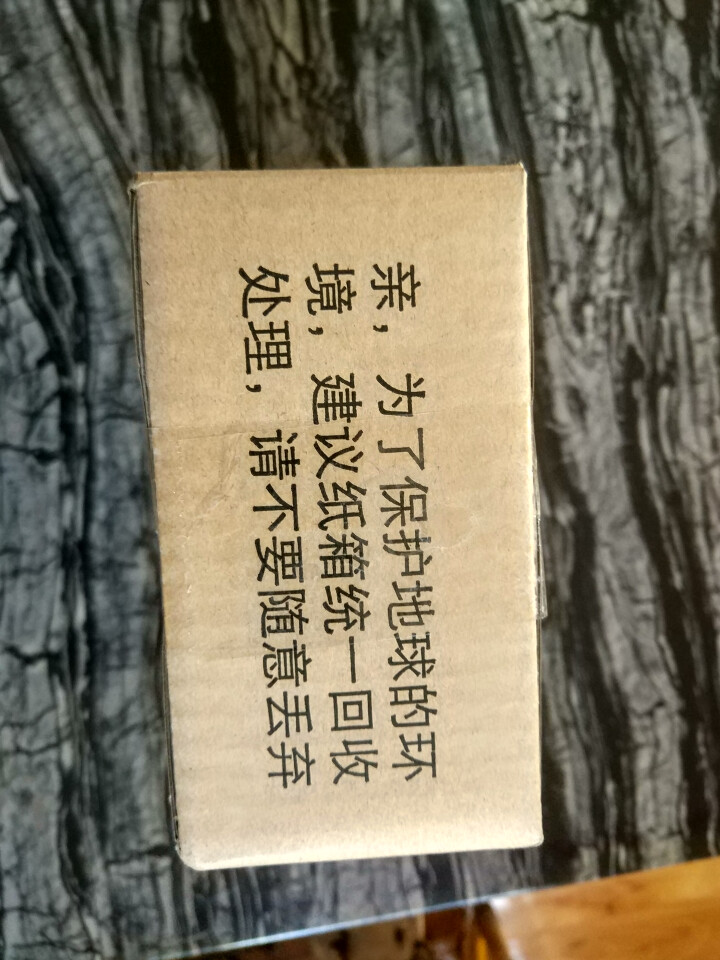 亲，为了保护地球的环
境，建议纸箱统一回收
处理，请不要随意丢弃